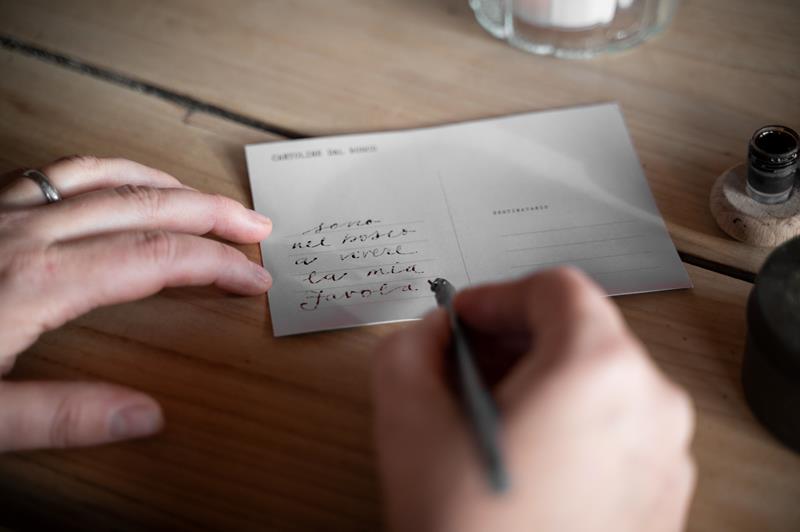 CARTOLINE DAL BOSCO
sono
nel bosco
a vivere
la mia
favola.
DESTINATARIO